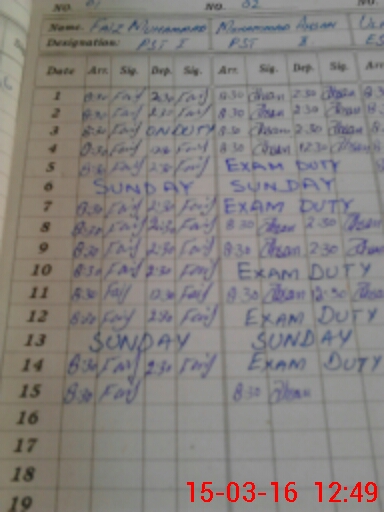 NO. 01 NO. 02 NO.
Name. FAIZ MUHAMMAD MUHAMMAD AHSAN
Designation: PST I PST X.
Date Arr. Sig. Dep. Sig. Arr. Sig. Dep. Sig. Arr.
1 8:30 Faiz 2:30 Faiz 8:30 Ahsan 2:30 Ahsan
2 8:30 Faiz 2:30 Faiz 8:30 Ahsan 2:30 Ahsan
3 8:30 Faiz ON DUTY 8:30 Ahsan 2:30 Ahsan
4 8:30 Faiz Faiz 8:30 Ahsan 12:30 Ahsan
5 8:30 Faiz 2:30 Faiz EXAM DUTY
6 SUNDAY SUNDAY
7 8:30 Faiz 2:30 Faiz EXAM DUTY
8 8:30 Faiz 2:30 Faiz 8:30 Ahsan 2:30 Ahsan
9 8:30 Faiz 2:30 Faiz 8:30 Ahsan 2:30 Ahsan
10 8:30 Faiz 2:30 Faiz EXAM DUTY
11 8:30 Faiz 12:30 Faiz 8:30 Ahsan 12:30 Ahsan
12 8:30 Faiz 2:30 Faiz EXAM DUTY
13 SUNDAY SUNDAY
14 8:30 Faiz 2:30 Faiz EXAM DUTY
15 8:30 Faiz 8:30 Ahsan
16
17
18
19
15-03-16 12:49